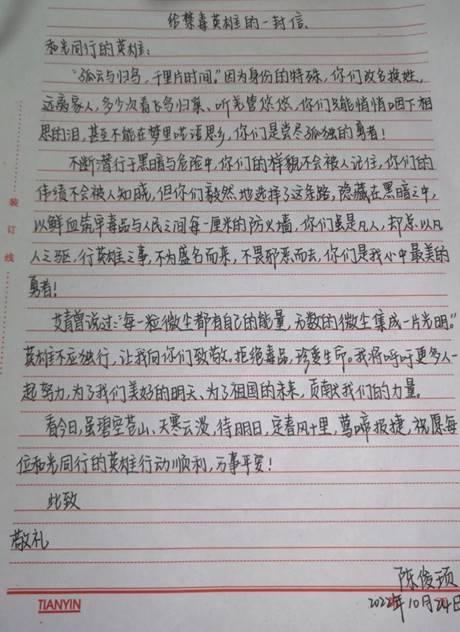 给禁毒英雄的一封信
和光同行的英雄:
"孤云与归鸟,千里片时间。"因为身份的特殊,你们改名换姓,
远离家人,多少次看飞鸟归巢、听羌管悠悠,你们只能悄悄咽下相
思的泪,甚至不能在梦里诺语思乡,你们是尝尽孤独的勇者!
不断潜行于黑暗与危险中,你们的样貌不会被人记住,你们的
伟绩不会被人知晓,但你们毅然地选择了这条路,隐藏在黑暗之中,
以鲜血筑牢毒品与人民之间每一厘米的防火墙,你们虽是凡人,却总以凡
人之躯,行英雄之事,不为盛名而来,不畏邪恶而去,你们是我心中最美的
勇者!
艾青曾说过:"每一粒微尘都有自己的能量,无数的微尘集成一片光明。"
英雄不应独行,让我向你们致敬。拒绝毒品,珍爱生命。我将呼吁更多人一
起努力,为了我们美好的明天,为了祖国的未来,贡献我们的力量。
看今日,虽碧空苍山、天寒云淡,待明日,定春风十里,莺啼报捷,祝愿每
位和光同行的英雄行动顺利,万事平安!
此致
敬礼
陈俊颀
2022年10月24日
装订线
TIANYIN